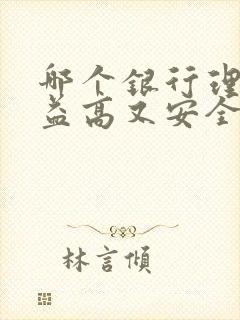 哪个银行理
益高又安全
林言慎